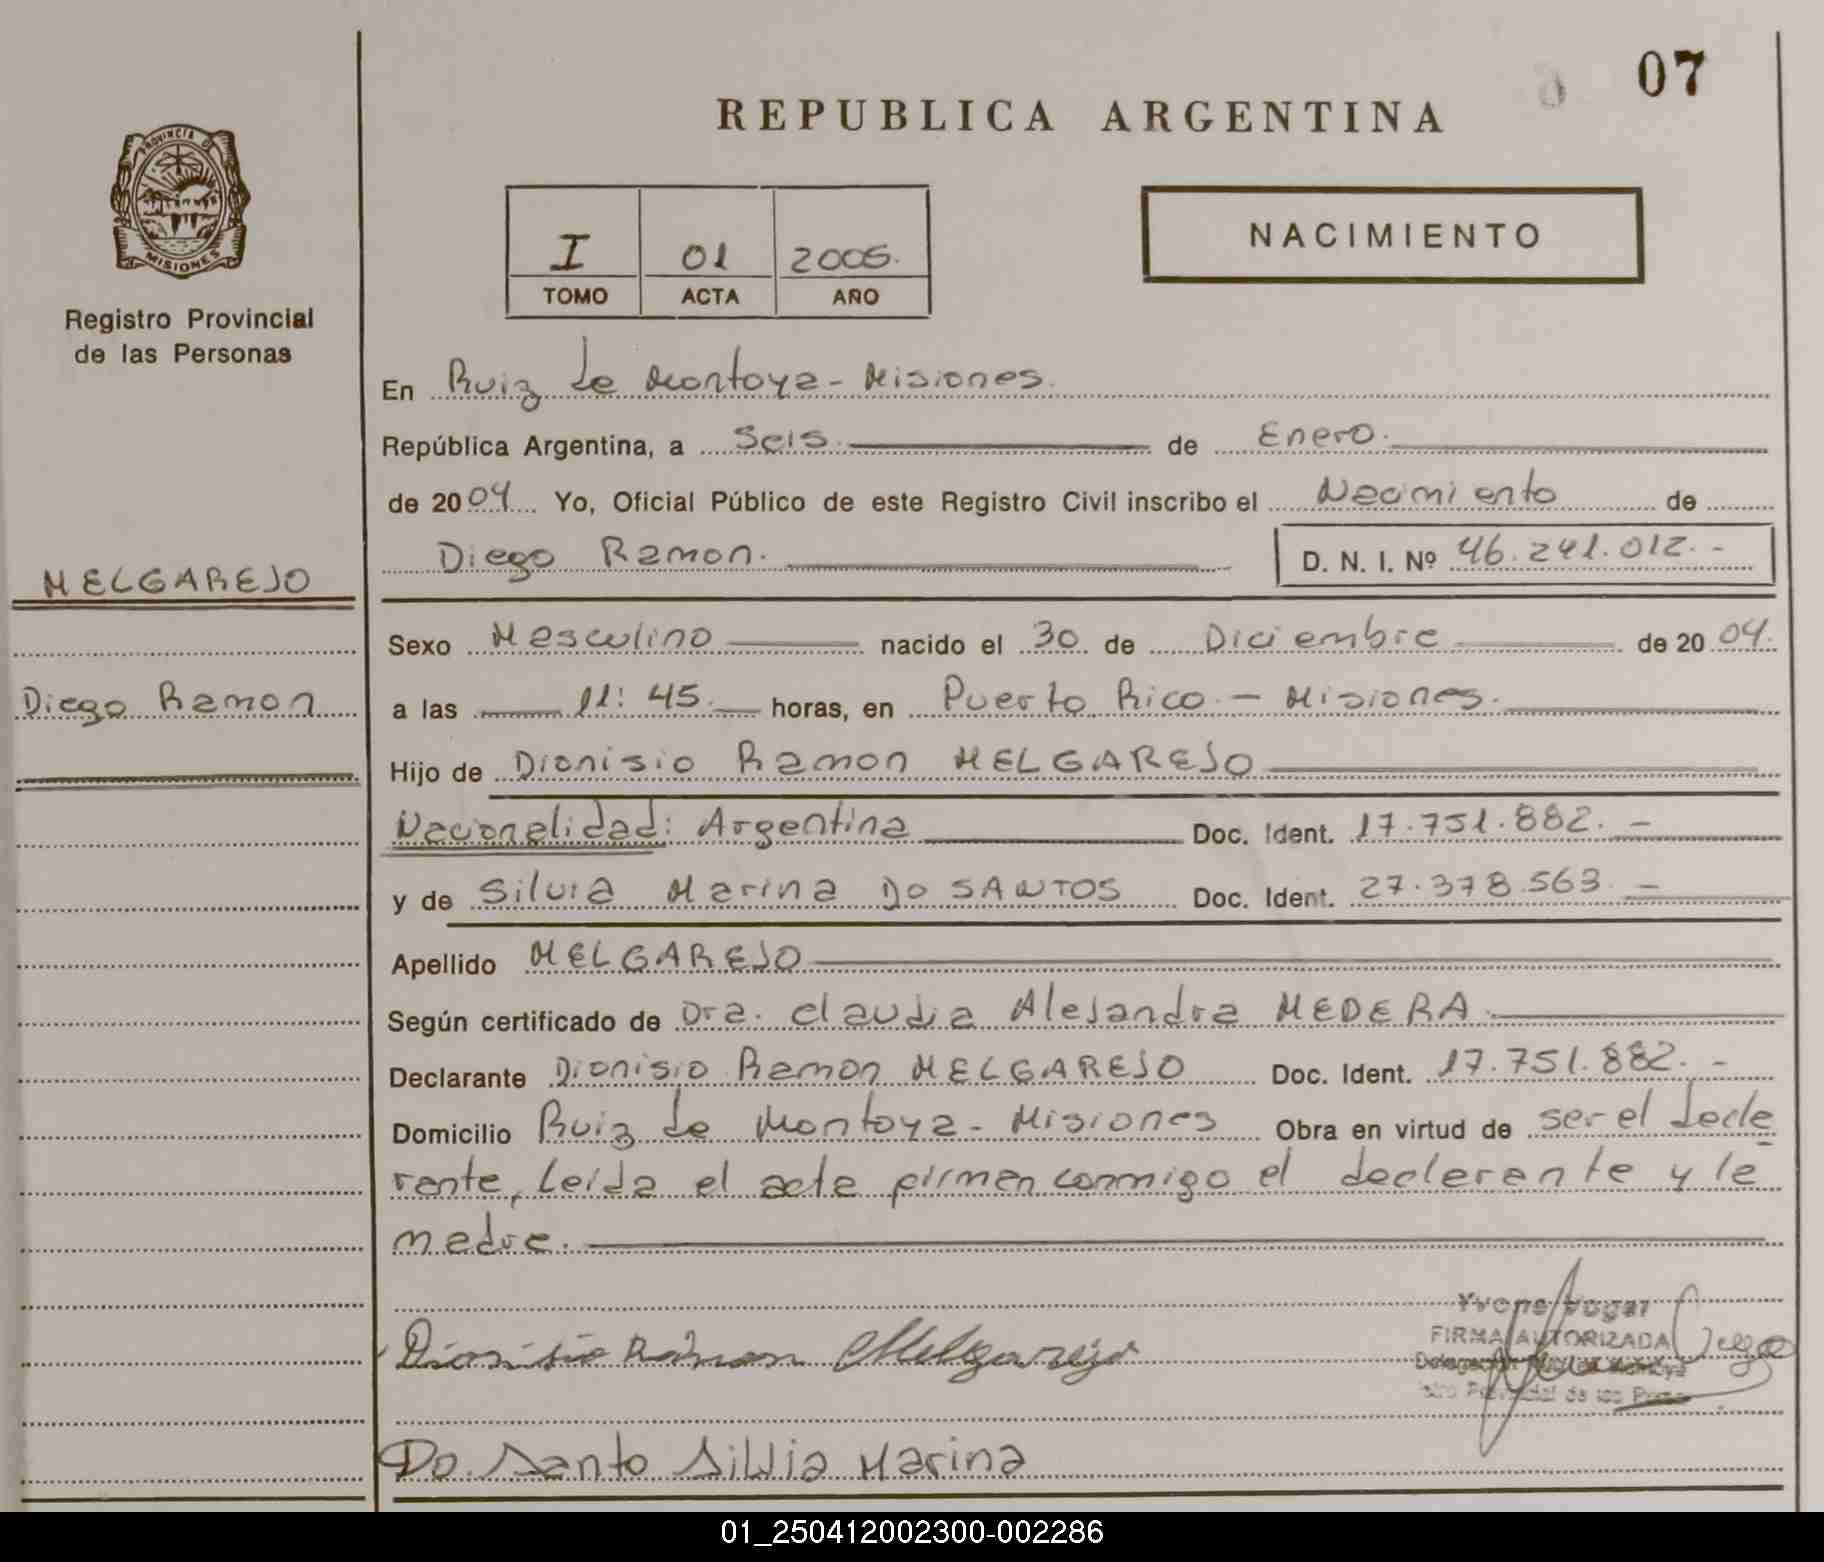 07
REPUBLICA ARGENTINA
PROVINCIA DE
MISIONES
Registro Provincial
de las Personas
I 01 2005.
TOMO ACTA AÑO
NACIMIENTO
En Ruiz de Montoya - Misiones.
República Argentina, a Seis. de Enero.
de 2004 Yo, Oficial Público de este Registro Civil inscribo el Nacimiento de
Diego Ramon. D. N. I. Nº 46.241.012.-
MELGAREJO
Sexo Masculino nacido el 30 de Diciembre de 2004.
Diego Ramon
a las 11:45. horas, en Puerto Rico. - Misiones.
Hijo de Dionisio Ramon MELGAREJO
Nacionalidad: Argentina Doc. Ident. 17.751.882. -
y de Silvia Marina DO SANTOS Doc. Ident. 27.378.563. -
Apellido MELGAREJO
Según certificado de Dra. Claudia Alejandra MEDERA.
Declarante Dionisio Ramon MELGAREJO Doc. Ident. 17.751.882. -
Domicilio Ruiz de Montoya - Misiones Obra en virtud de ser el decla
rante, Leída el acta firman conmigo el declarante y la
madre.
FIRMA AUTORIZADA
Dionisio Ramon Melgarejo
Do Santo Silvia Marina
01_250412002300-002286